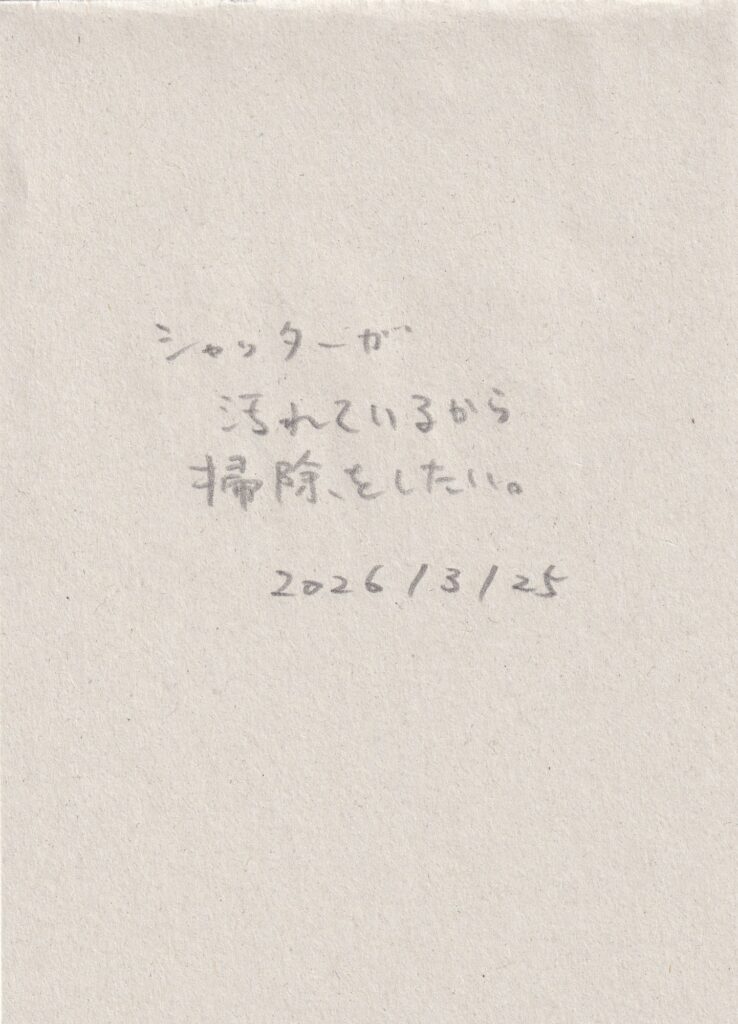 シャッターが
汚れているから
掃除をしたい。
2026/3/25